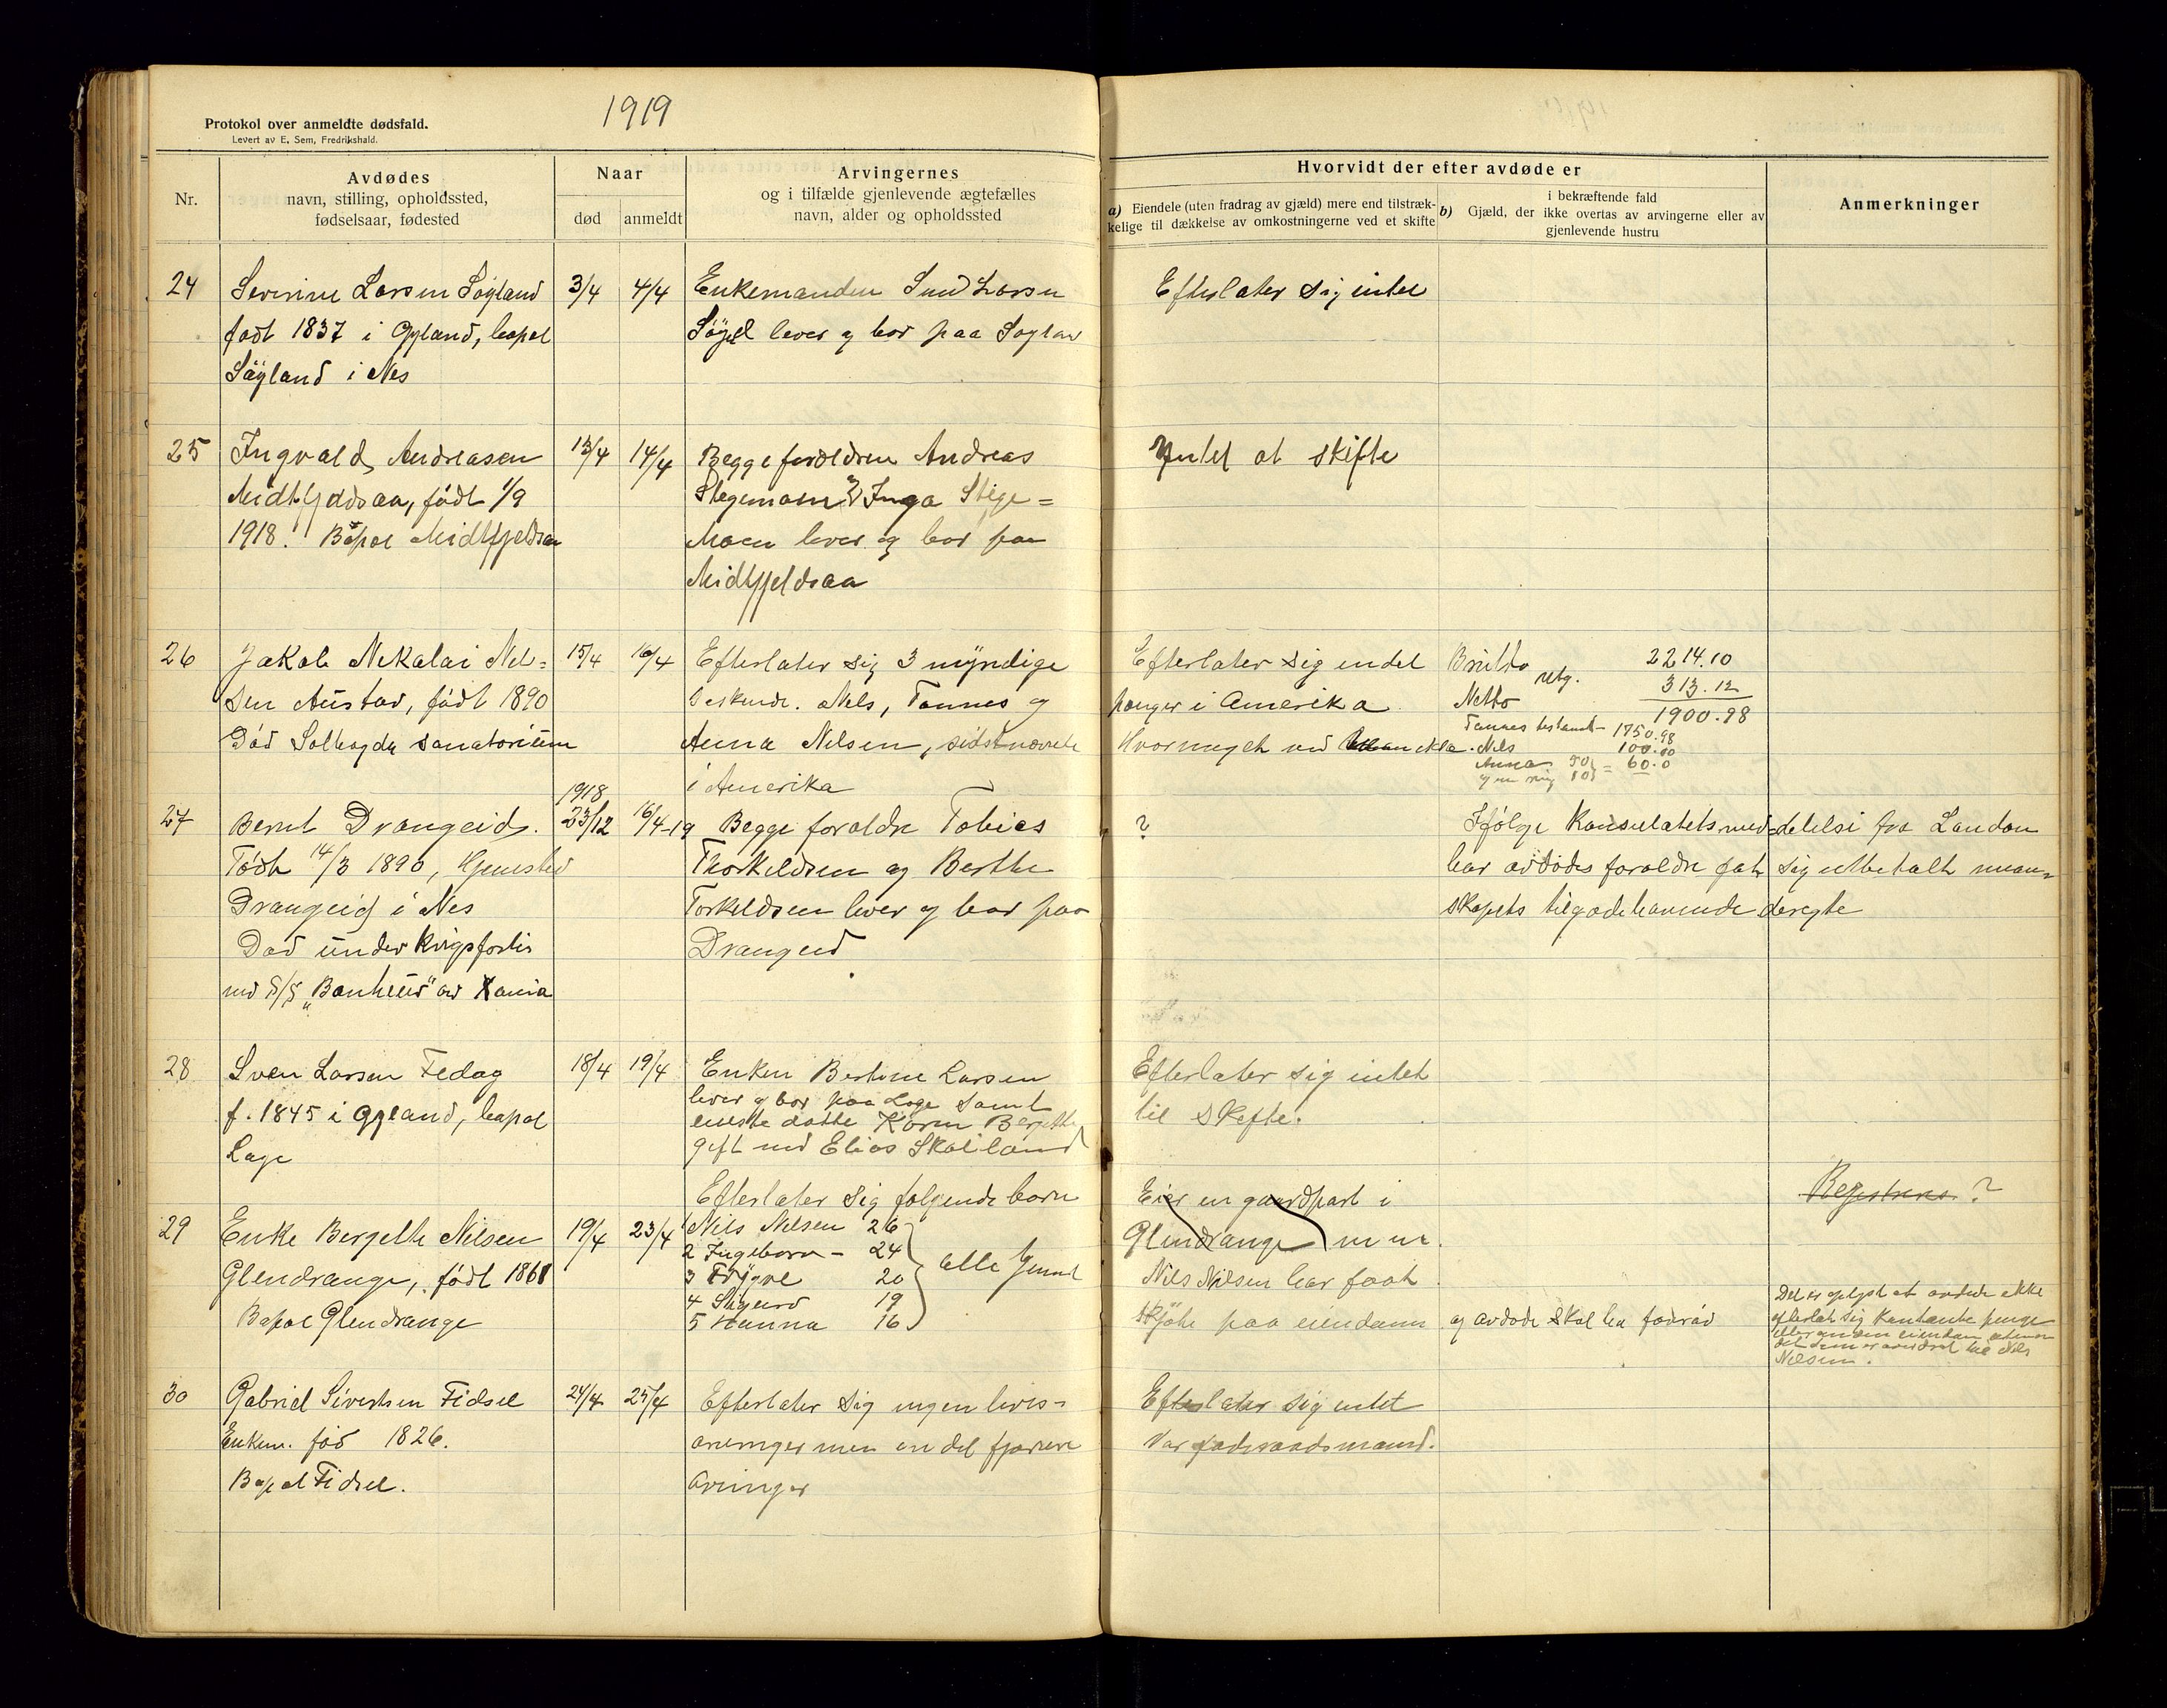 1919
Protokol over anmeldte dødsfald.
Levert av E, Sem, Fredrikshald.
Nr.
Avdødes
navn, stilling, opholdssted,
fødselsaar, fødested
Naar
død
anmeldt
Arvingernes
og i tilfælde gjenlevende ægtefælles
navn, alder og opholdssted
Hvorvidt der efter avdøde er
a) Eiendele (uten fradrag av gjæld) mere end tilstræk-
kelige til dækkelse av omkostningerne ved et skifte
b)
i bekræftende fald
Gjæld, der ikke overtas av arvingerne eller av
gjenlevende hustru
Anmerkninger
24
Severine Larsen Søyland
født 1837 i Gyland, bopel
Søyland i Nes
3/4
4/4
Enkemanden Larsen
lever og bor paa
Efterlater sig intet
25
Ingvald Andreasen
født 1/9
1918. Bopæl Midtfjeldsaa
13/4
14/4
Begge forældren Andreas
Inga Stige=
Moen lever og bor paa
Midtfjeldsaa
Intet at skifte
26
Jakob Nikolai Nil=
sen Austad, født 1890
Død sanatorium
15/4
16/4
Efterlater sig 3 myndige
Nils, Tønnes og
Anna Nilsen, sidstnævnte
i Amerika
Efterlater sig endel
penger i Amerika
Hvormeget ved ikke.
Brutto 2214.10
utg. 313.12
Netto 1900.98
Tønnes 1750.98
Nils 100.00
Anna 50 = 60.0
27
Bernt Drangeid.
Født 14/3 1890, Hjemsted
Drangeid i Nes
Død under krigsforlis
med S/S av Xania
1918
23/12
16/4-19
Begge foraldre Tobias
Thorkildsen og Berthe
Torkildsen lever og bor paa
Drangeid
?
Ifølge Konsulatets meddelelse fra London
har avdødes foraldre fat sig utbetalt
tilgodehavende
28
Sven Larsen Fedog
f. 1845 i Gyland, bopel
Loge
18/4
19/4
Enken Bertine Larsen
lever og bor paa Loge samt
eneste datter Karen
gift med Elias
Efterlater sig intet
til skifte.
29
Enke Bergette Nilsen
Glendrange, født 1861
Bopæl Glendrange
19/4
23/4
Efterlater sig følgende born
1 Nils Nilsen 26
2 Ingeborg - 24
3 Trygve 20
4 Sigurd 19
5 Hanna 16
alle
Eier en gaardpart i
Glendrange
Nils Nilsen har faat
skjøte paa eiendann og avdøde skal ha
?
Det er oplyst at avdøde ikke
efterlot sig kontante penge
Nilsen.
30
Gabriel Sivertsen Fidsel
Enkem. fød 1826.
Bopæl Fidsel.
24/4
25/4
Efterlater sig ingen livs-
arvinger men en del fjærnere
arvinger
Efterlater sig intet
Var foderaadsmand.